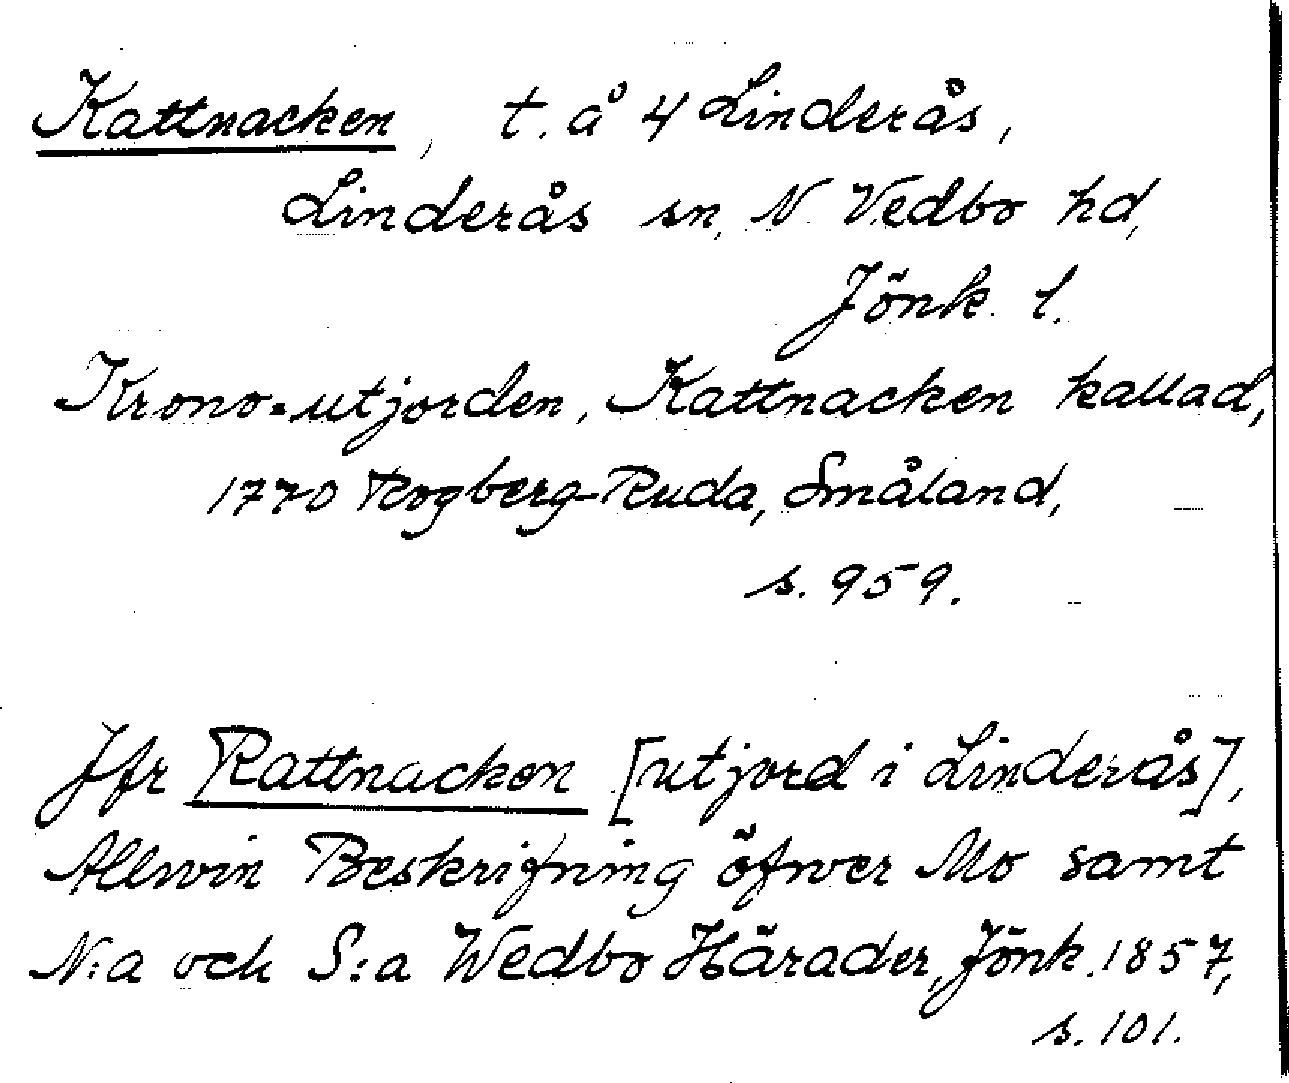 Kattnacken, t. å 4 Linderås,
Linderås sn, N Vedbo hd,
Jönk. l.
Krono-utjorden, Kattnacken kallad,
1770 Rogberg-Ruda, Småland,
s. 959.
Jfr Rattnacken [utjord i Linderås],
Allvin Beskrifning öfwer Mo samt
N:a och S:a Wedbo Härader, Jönk. 1857,
s. 101.